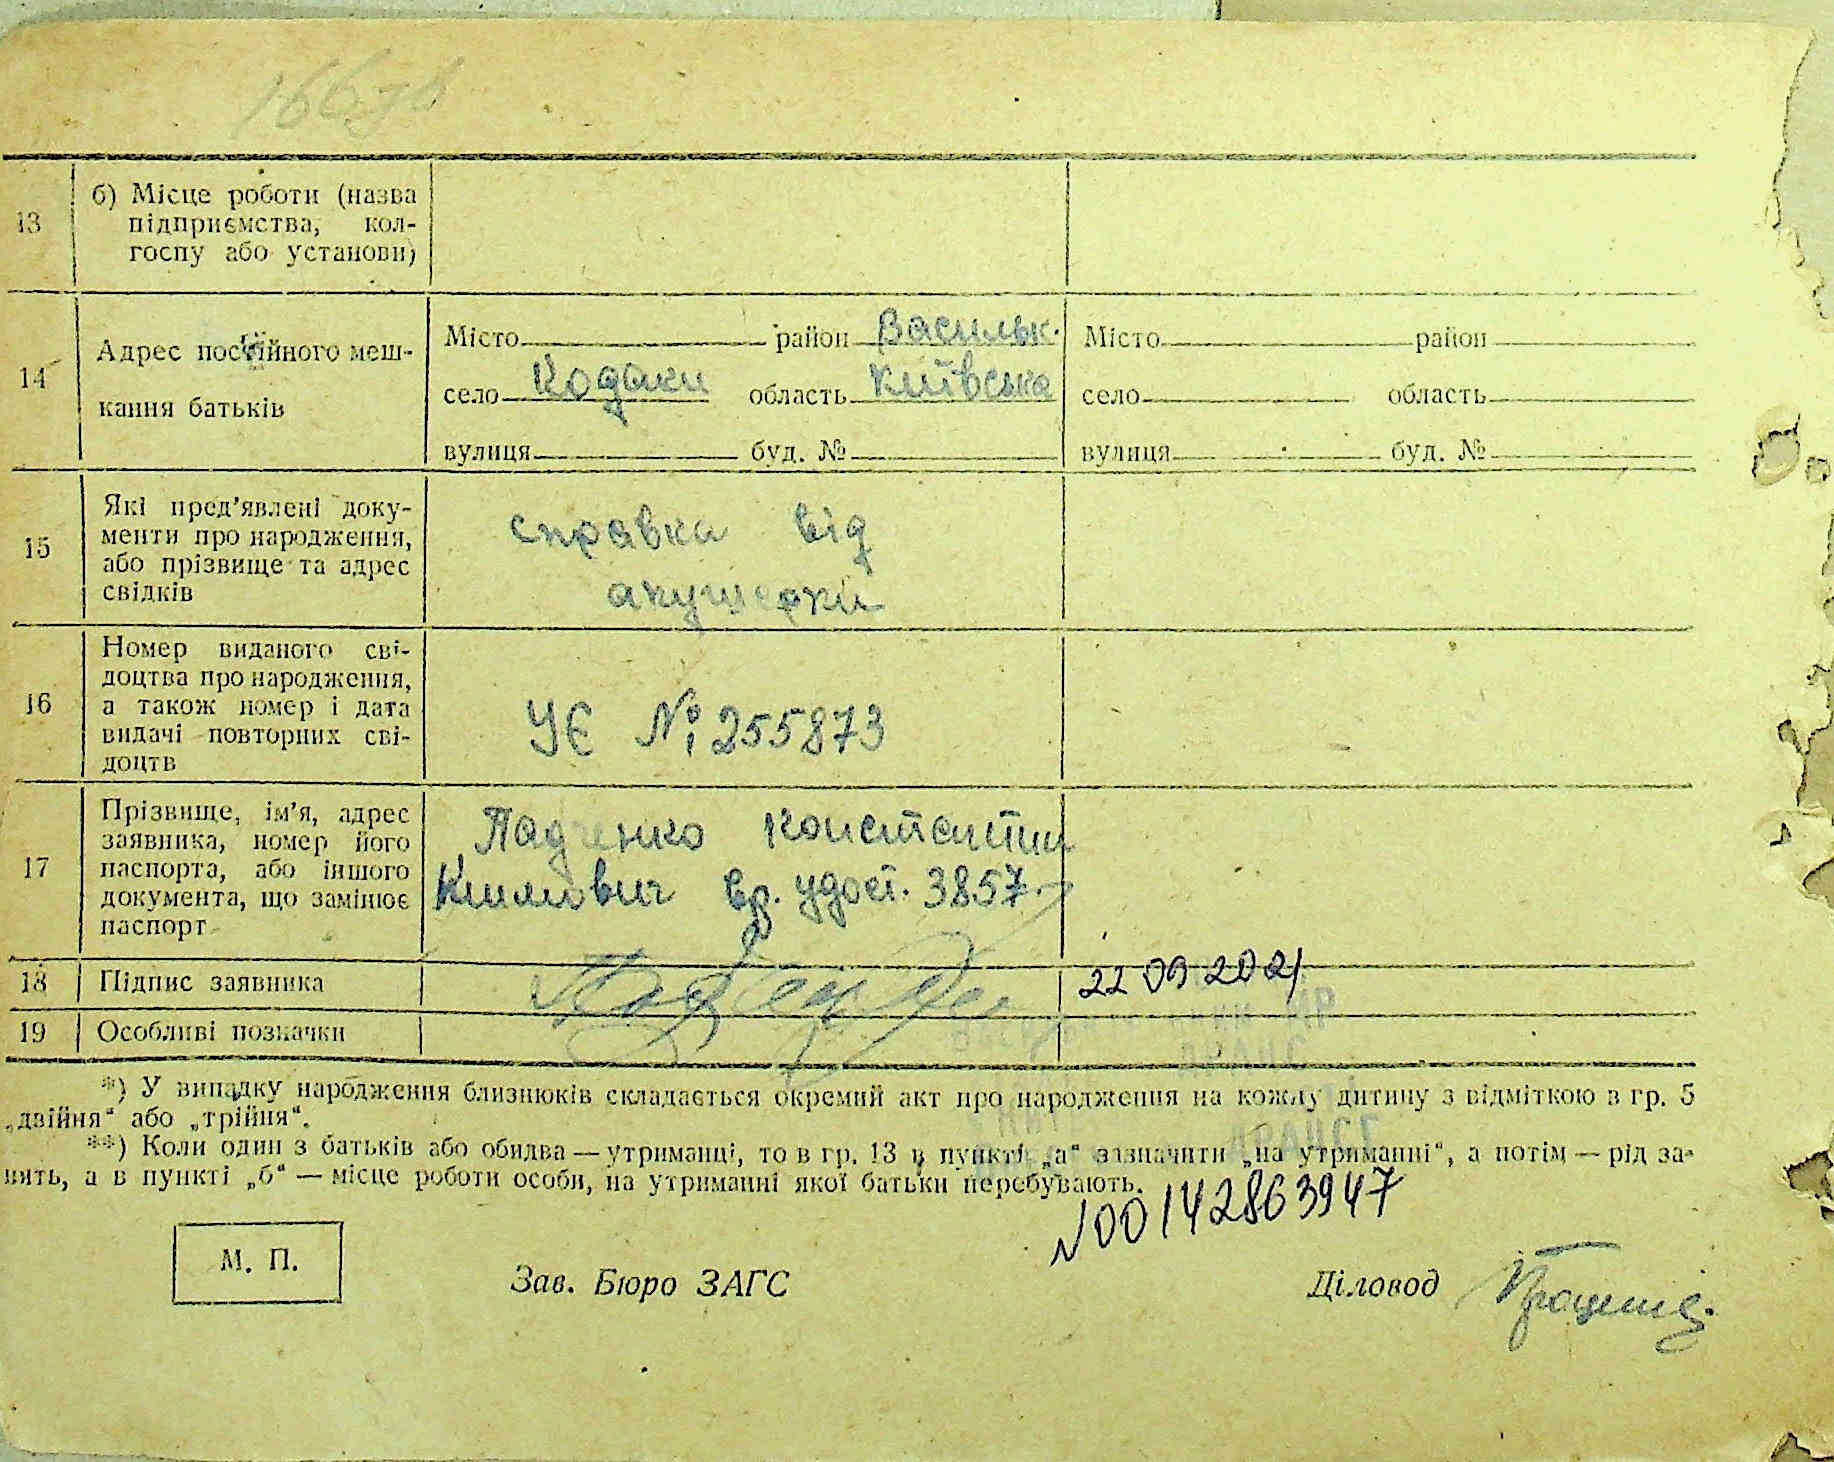 13
б) Місце роботи (назва
підприємства, кол-
госпу або установи)
14
Адрес постійного меш-
кання батьків
Місто район Васильк.
село Кодаки область Київська
вулиця буд. №
Місто район
село область
вулиця буд. №
15
Які пред’явлені доку-
менти про народження,
або прізвище та адрес
свідків
справка від
акушерки
16
Номер виданого сві-
доцтва про народження,
а також номер і дата
видачі повторних сві-
доцтв
УЄ № 255873
17
Прізвище, ім’я, адрес
заявника, номер його
паспорта, або іншого
документа, що замінює
паспорт
Константин
Климович вр. удост. 3857
18 Підпис заявника
22 09 2021
19 Особливі позначки
*) У випадку народження близнюків складається окремий акт про народження на кожну дитину з відміткою в гр. 5
„двійня“ або „трійня“.
**) Коли один з батьків або обидва — утриманці, то в гр. 13 в пункті „а“ зазначити „на утриманні“, а потім — рід за-
нять, а в пункті „б“ — місце роботи особи, на утриманні якої батьки перебувають.
N00142863947
М. П.
Зав. Бюро ЗАГС
Діловод